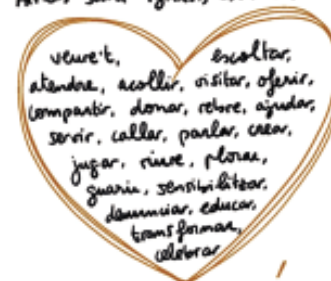 veure't, escoltar,
atendre, acollir, visitar, oferir,
compartir, donar, rebre, ajudar,
servir, callar, parlar, crear,
jugar, riure, plorar,
guarir, sensibilitzar,
denunciar, educar,
transformar,
celebrar